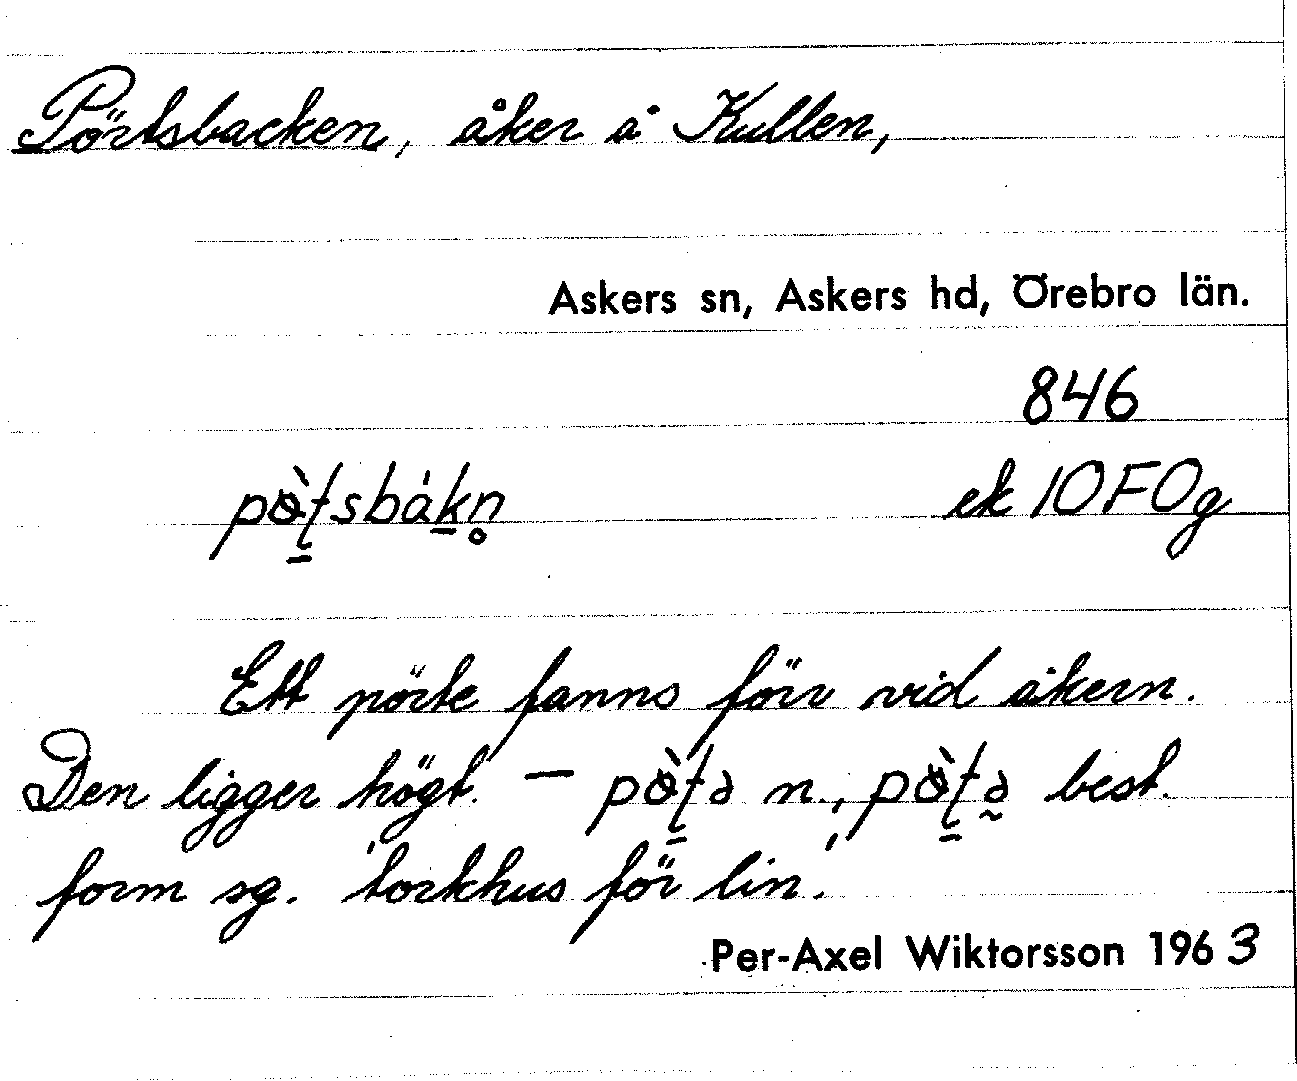 Pörtsbacken, åker å Kullen,
Askers sn, Askers hd, Örebro län.
846
ek 10F0g
Ett pörte fanns förr vid åkern.
Den ligger högt. — n., best.
form sg. 'torkhus för lin'.
Per-Axel Wiktorsson 1963